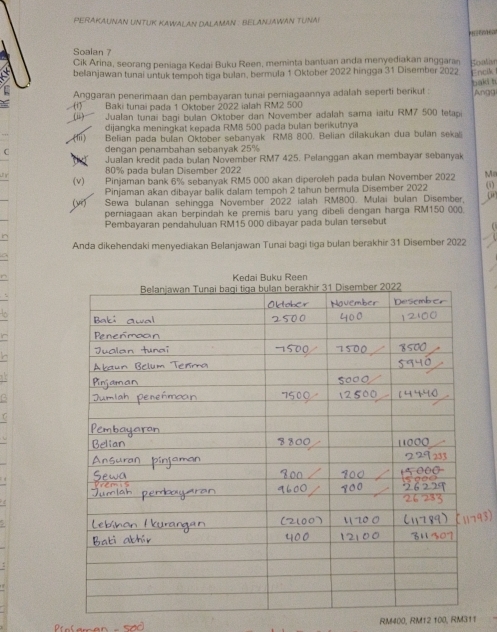 PERAKAUNAN UNTUK KAWALAN DALAMAN : BELANJAWAN TUNAI
Soalan 7
Cik Arina, seorang peniaga Kedai Buku Reen, meminta bantuan anda menyediakan anggaran
belanjawan tunai untuk tempoh tiga bulan, bermula 1 Oktober 2022 hingga 31 Disember 2022
Anggaran penerimaan dan pembayaran tunai perniagaannya adalah seperti berikut :
(i) Baki tunai pada 1 Oktober 2022 ialah RM2 500
(ii) Jualan tunai bagi bulan Oktober dan November adalah sama iaitu RM7 500 tetapi
dijangka meningkat kepada RM8 500 pada bulan berikutnya
(iii) Belian pada bulan Oktober sebanyak RM8 800. Belian dilakukan dua bulan sekali
dengan penambahan sebanyak 25%
(iv) Jualan kredit pada bulan November RM7 425. Pelanggan akan membayar sebanyak
80% pada bulan Disember 2022
(v) Pinjaman bank 6% sebanyak RM5 000 akan diperoleh pada bulan November 2022
Pinjaman akan dibayar balik dalam tempoh 2 tahun bermula Disember 2022
(vi) Sewa bulanan sehingga November 2022 ialah RM800. Mulai bulan Disember,
perniagaan akan berpindah ke premis baru yang dibeli dengan harga RM150 000.
Pembayaran pendahuluan RM15 000 dibayar pada bulan tersebut
Anda dikehendaki menyediakan Belanjawan Tunai bagi tiga bulan berakhir 31 Disember 2022
Kedai Buku Reen
Belanjawan Tunai bagi tiga bulan berakhir 31 Disember 2022
Oktober November Desember
Baki awal 2500 400 12100
Penerimaan
Jualan tunai 7500 7500 8500
Akaun Belum Terima 5940
Pinjaman 5000
Jumlah penerimaan 7500 12500 14440
Pembayaran
Belian 8800 11000
Ansuran pinjaman 229 233
Sewa 800 800 15000
Premis 15000
Jumlah pembayaran 9600 800 26229
26233
Lebihan / kurangan (2100) 11700 (11789) (11793)
Baki akhir 400 12100 311 307
RM400, RM12 100, RM311
Pinjaman - 500